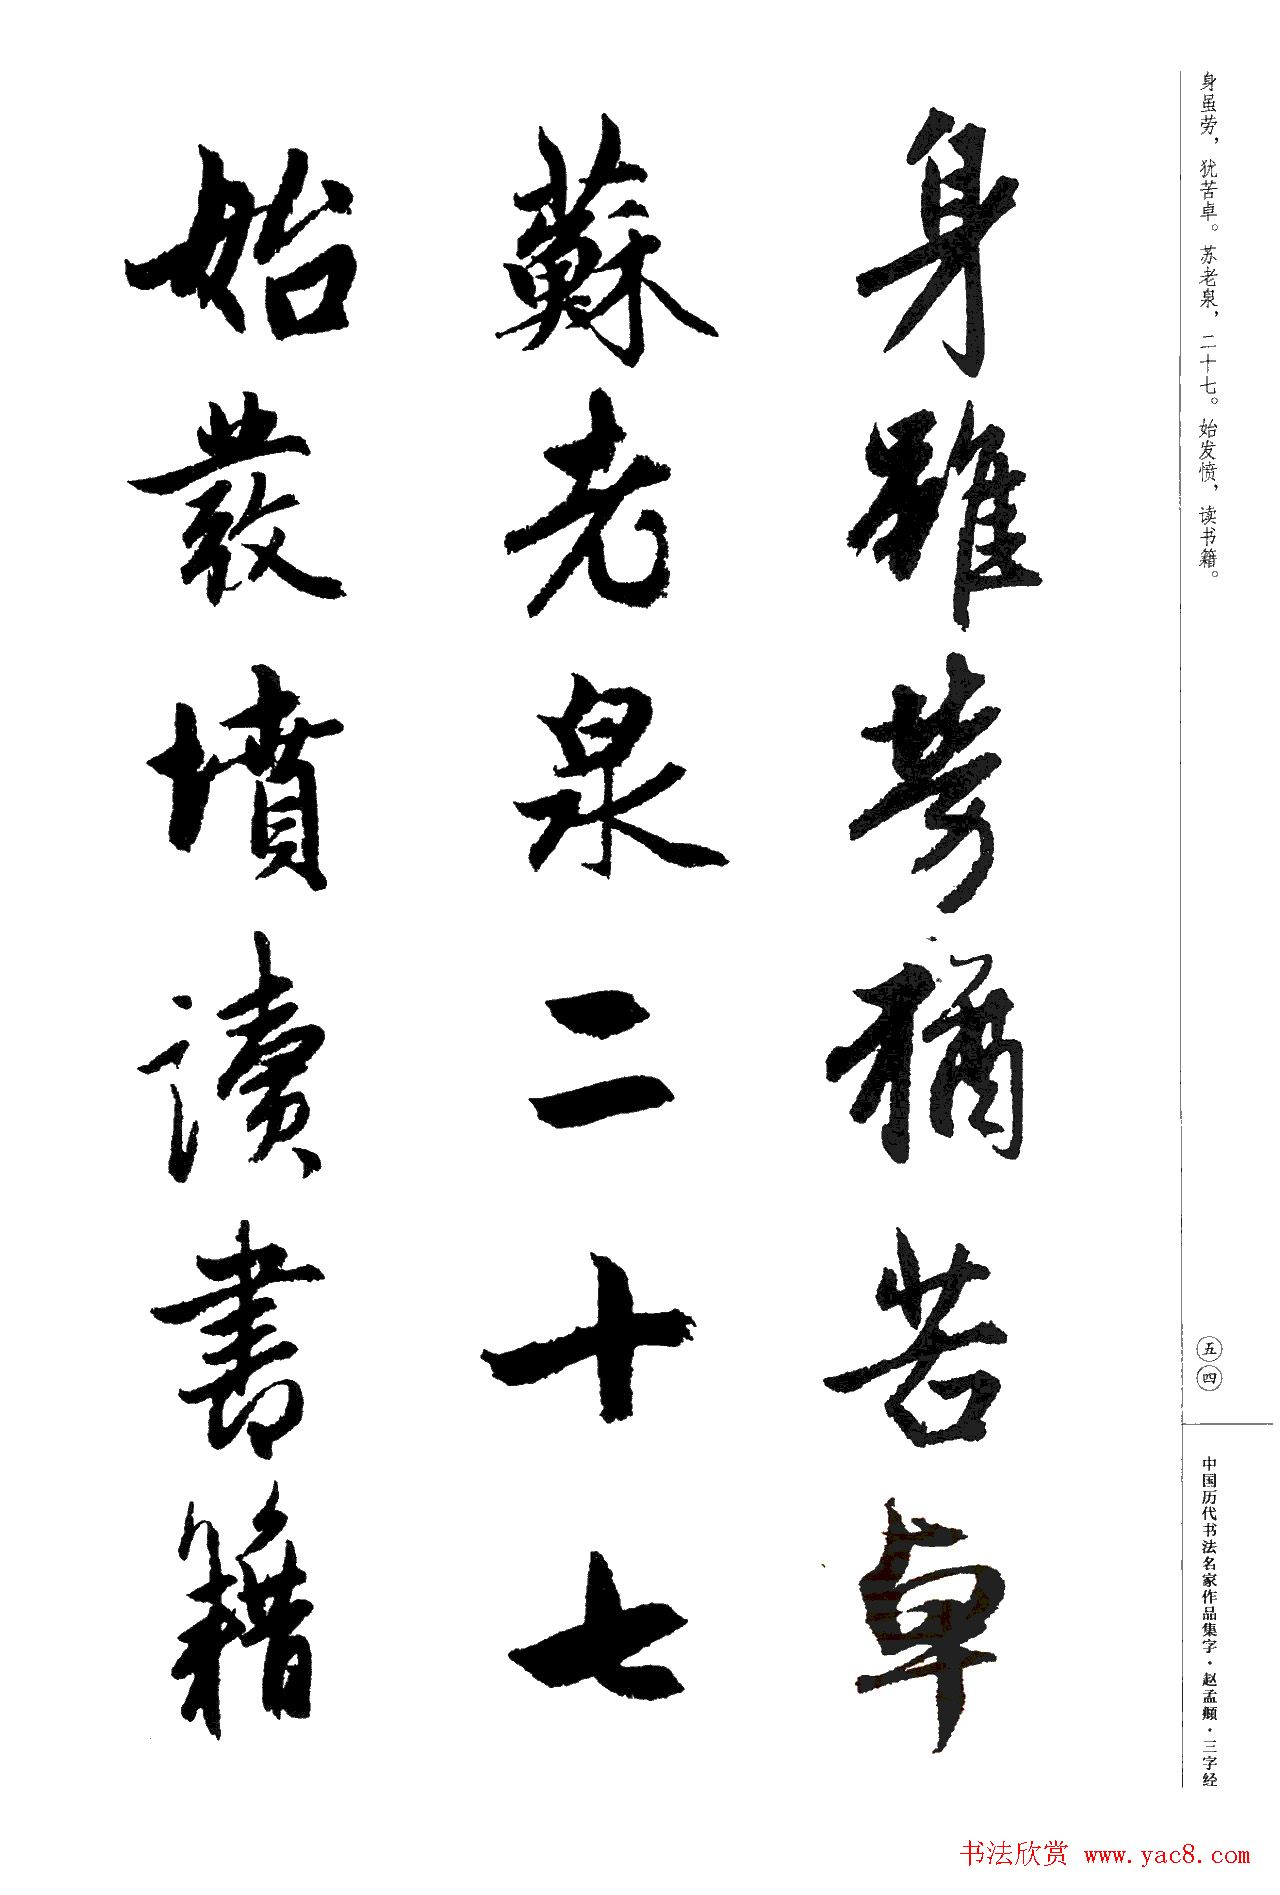 身虽劳，犹苦卓。苏老泉，二十七。始发愤，读书籍。
五四
中国历代书法名家作品集字·赵孟頫·三字经
身雖勞猶苦卓
蘇老泉二十七
始發墳讀書籍
书法欣赏 www.yac8.com